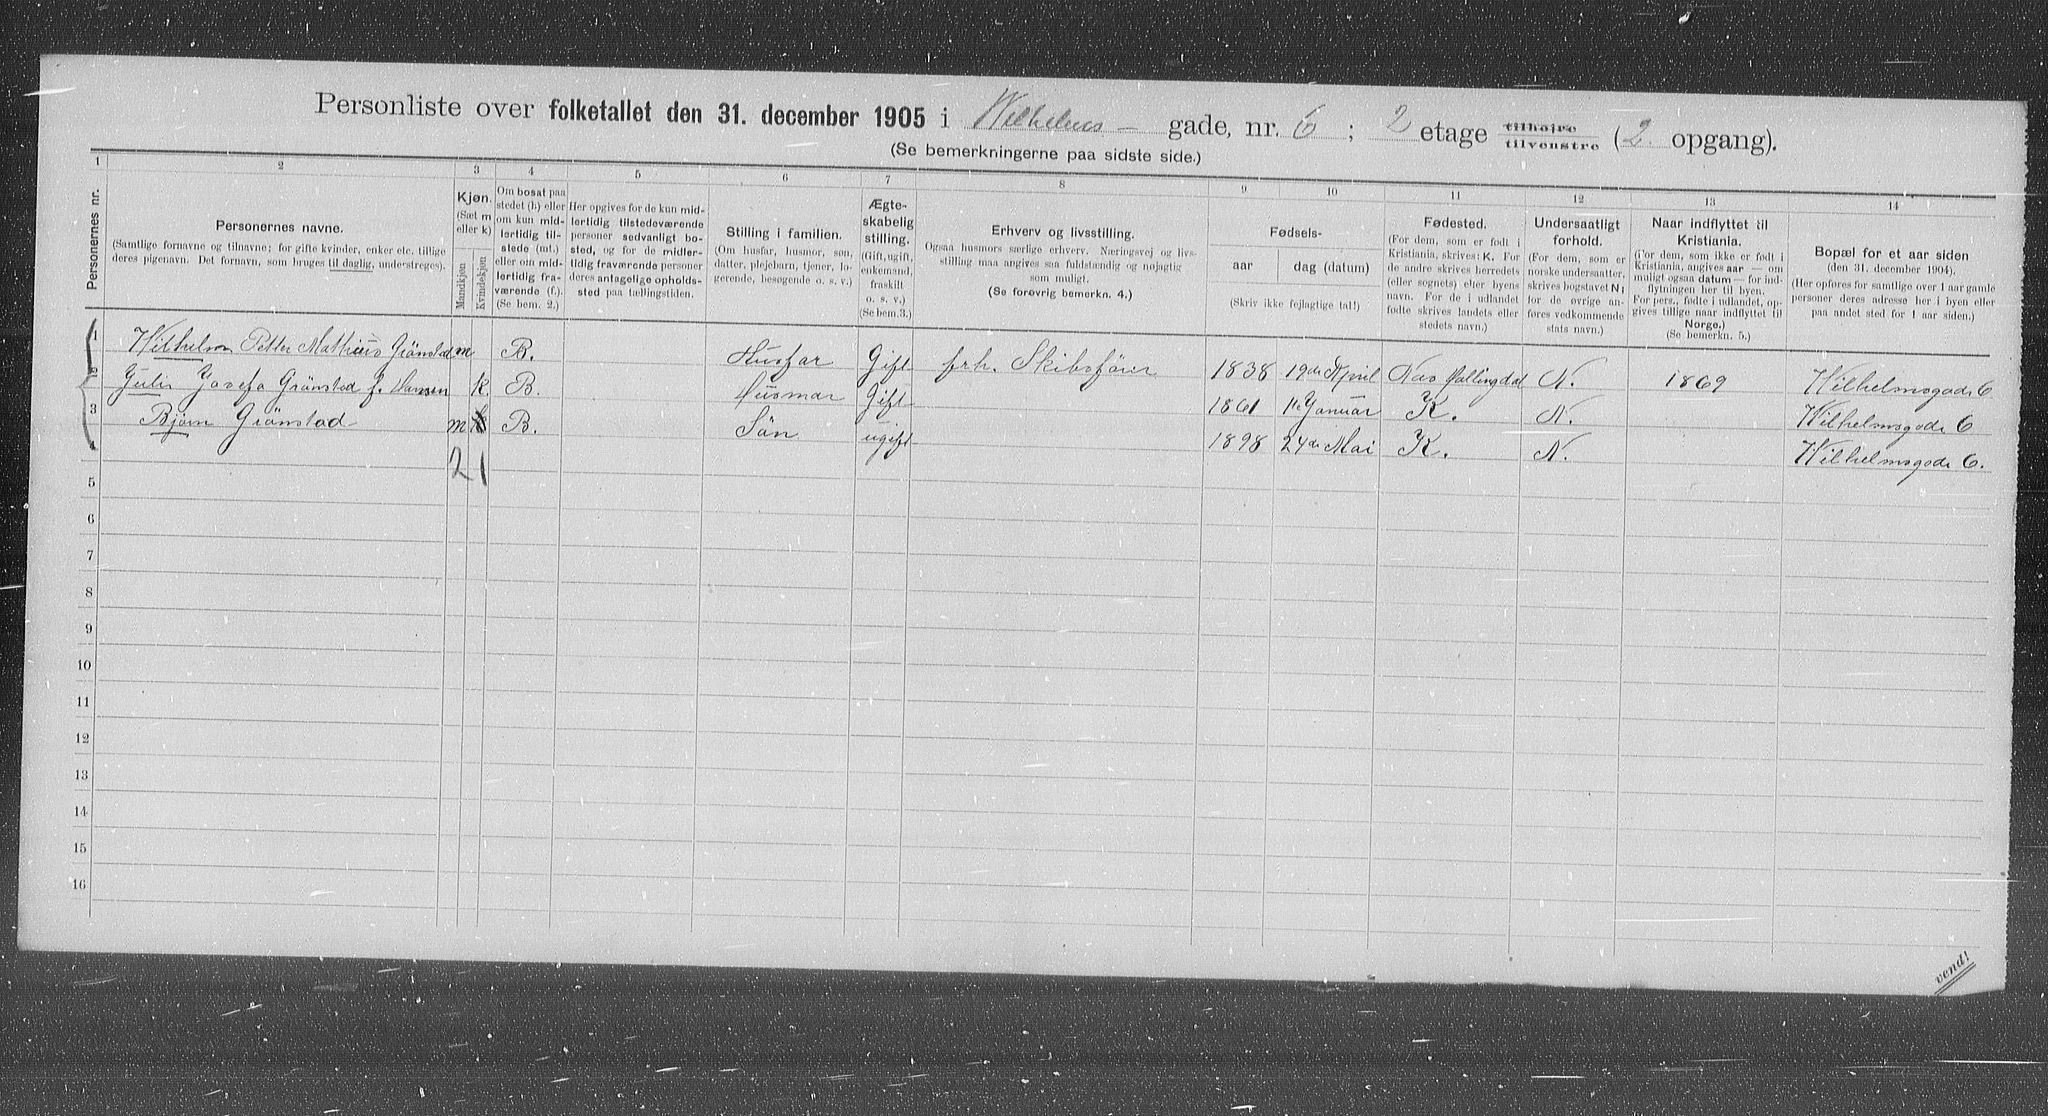 Personliste over folketallet den 31. december 1905 i Wilhelms - gade, nr. 6 ; 2 etage tilhøjre tilvenstre (2. opgang).
(Se bemerkningerne paa sidste side.)
1 2 3 4 5 6 7 8 9 10 11 12 13 14
Personernes nr.
Personernes navne.
(Samtlige fornavne og tilnavne; for gifte kvinder, enker etc. tillige
deres pigenavn. Det fornavn, som bruges til daglig, understreges).
Kjøn.
(Sæt m
eller k)
Mandkjøn
Kvindekjøn
Om bosat paa
stedet (b) eller
om kun mid-
lertidig til-
stede (mt.)
eller om mid-
lertidig fra-
værende (f.).
(Se bem. 2.)
Her opgives for de kun mid-
lertidig tilstedeværende
personer sedvanligt bo-
sted, og for de midler-
tidig fraværende personer
deres antagelige opholds-
sted paa tællingstiden.
Stilling i familien.
(Om husfar, husmor, søn,
datter, plejebarn, tjener, lo-
gerende, besøgende o. s. v.)
Ægte-
skabelig
stilling.
(Gift, ugift,
enkemand,
fraskilt
o. s. v.)
(Se bem.3.)
Erhverv og livsstilling.
Ogsaa husmors særlige erhverv. Næringsvej og livs-
stilling maa angives saa fuldstændig og nøjagtig
som muligt.
(Se forøvrig bemerkn. 4.)
Fødsels-
aar
dag (datum)
(Skriv ikke fejlagtige tal!)
Fødested.
(For dem, som er født i
Kristiania, skrives: K. For
de andre skrives herredets
(eller sognets) eller byens
navn. For de i udlandet
fødte skrives landets eller
stedets navn.)
Undersaatligt
forhold.
(For dem, som er
norske undersaatter,
skrives bogstavet N;
for de øvrige an-
føres vedkommende
stats navn.)
Naar indflyttet til
Kristiania.
(For dem, som ikke er født i
Kristiania, angives aar — om
muligt ogsaa datum — for ind-
flytningen her til byen.
For pers., fødte i udlandet, op-
gives tillige naar indflyttet til
Norge.)
(Se bemerkn. 5.)
Bopæl for et aar siden
(den 31. december 1904).
(Her opføres for samtlige over 1 aar gamle
personer deres adresse her i byen eller
paa andet sted for 1 aar siden.)
1 Wilhelm Petter Mathius Grønstad m B. Husfar Gift frh. Skibsfører 1838 19de April Næs Hallingdal N. 1869 Wilhelmsgade 6
2 Julie Josefa Grønstad f. Hansen k. B. Husmor Gift 1861 11te Januar K. N. Wilhelmsgade 6
3 Bjørn Grønstad m B. Søn ugift 1898 24de Mai K. N. Wilhelmsgade 6.
4 2 1
5
6
7
8
9
10
11
12
13
14
15
16
vend!